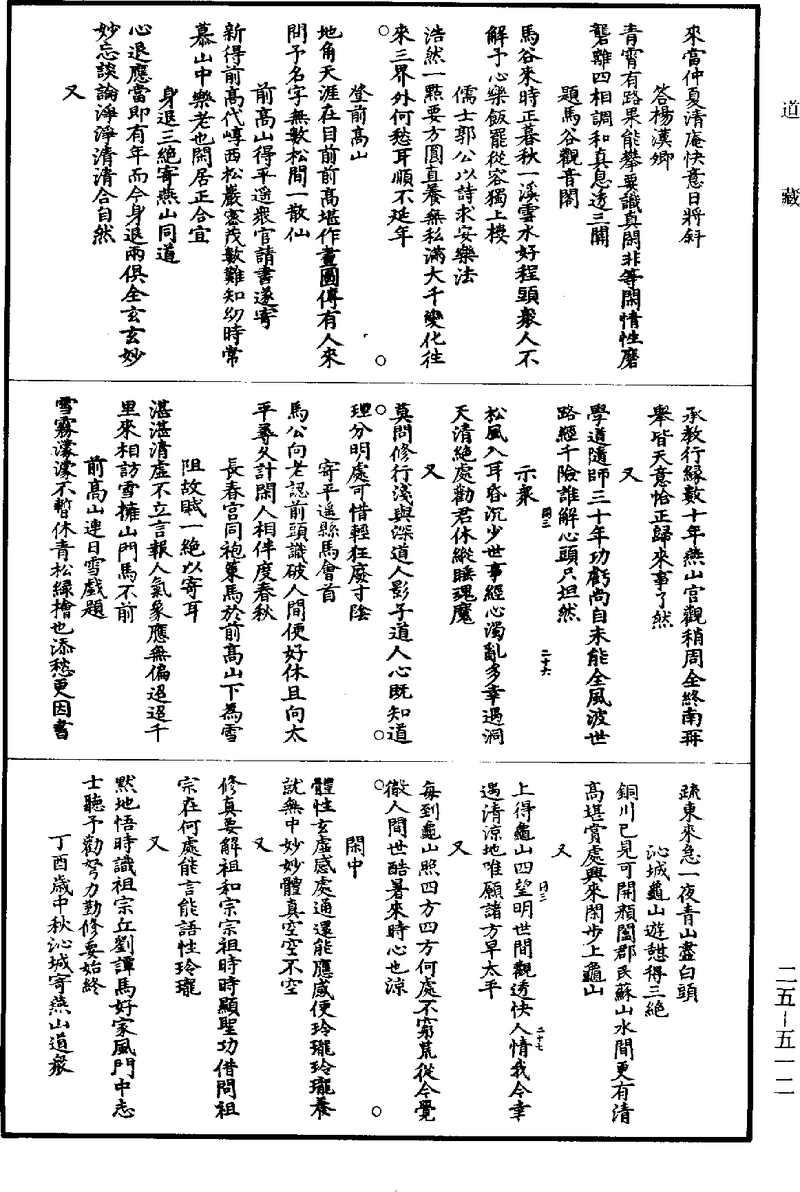 道藏
來當仲夏清庵快意日將斜
答楊漢卿
青霄有路果能攀要識真閑非等閑情性磨
礱離四相調和真息透三關
題馬谷觀音閣
馬谷來時正暮秋一溪雲水好程頭衆人不
解予心樂飯罷從容獨上樓
儒士郭公以詩求安樂法
浩然一點要方圓直養無私滿大千變化往
來三界外何愁耳順不延年
登前高山
地角天涯在目前前高堪作畫圖傳有人來
問予名字無數松間一散仙
前高山得平遙衆官請書遂寄
新得前高代崞西松巖靈茂數難知幼時常
慕山中樂老也閑居正合宜
身退三絕寄燕山同道
心退應當即有年而今身退兩俱全玄玄妙
妙忘談論淨淨清清合自然
又
承教行緣數十年燕山宮觀稍周全終南再
舉皆天意恰正歸來事了然
又
學道隨師三十年功虧尚自未能全風波世
路經千險誰解心頭只坦然
示衆
松風入耳昏沉少世事經心濁亂多幸遇洞
天清絕處勸君休縱睡魂魔
又
莫問修行淺與深道人影子道人心既知道
理分明處可惜輕狂廢寸陰
寄平遙縣馬會首
馬公向老認前頭識破人間便好休且向太
平尋久計閑人相伴度春秋
長春宮同袍策馬於前高山下為雪
阻故賦一絕以寄耳
湛湛清虛不立言報人氣象應無偏迢迢千
里來相訪雪擁山門馬不前
前高山連日雪戲題
雪霧濛濛不暫休青松綠檜也添愁更因書
二十六
疏東來急一夜青山盡白頭
沁城龜山遊憩得三絕
銅川已見可開顏闔郡民蘇山水間更有清
高堪賞處興來閑步上龜山
又
上得龜山四望明世間觀透快人情我今幸
遇清涼地唯願諸方早太平
又
每到龜山照四方四方何處不窮荒從今覺
徹人間世酷暑來時心也涼
閑中
體性玄虛感處通還能應感便玲瓏玲瓏養
就無中妙妙體真空空不空
又
修真要解祖和宗宗祖時時顯聖功借問祖
宗在何處能言能語性玲瓏
又
默地悟時識祖宗丘劉譚馬好家風門中志
士聽予勸努力勤修要始終
丁酉歲中秋沁城寄燕山道衆
二十七
二五—五一二